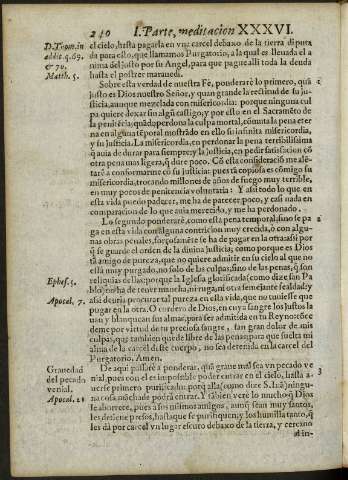 240 I. Parte, meditacion XXXVI.
D. Thom. in addit. q. 69. & 70.
Matth. 5.
el cielo, hasta pagarla en vna carcel debaxo de la tierra diputa
da para esto, que llamamos Purgatorio, a la qual es lleuada el a
nima del justo por su Angel, para que pague alli toda la deuda
hasta el postrer marauedi.
Sobre esta verdad de nuestra Fè, ponderarè lo primero, quã
justo es Dios nuestro Señor, y quan grande la rectitud de su ju
sticia, aunque mezclada con misericordia: porque ninguna cul
pa quiere dexar sin algũ castigo, y por esto en el Sacramẽto de
la penitẽcia, quãdo perdona la culpa mortal, cõmuta la pena eter
na en alguna tẽporal mostrãdo en ello su infinita misericordia,
y su justicia. La misericordia, en perdonar la pena terribilissima
q̃ auia de durar para siempre y la justicia, en pedir satisfacion cõ
otra pena mas ligera, q̃ dure poco. Cõ esta consideraciõ me alẽ-
tarè a conformarme cõ su justicia: pues tã copiosa es cõmigo su
misericordia, trocando millones de años de fuego muy terrible,
en muy pocos de penitencia voluntaria: Y assi todo lo que en
esta vida puedo padecer, me ha de parecer poco, y casi nada en
comparacion de lo que auia merecido, y me ha perdonado.
Lo segundo ponderarè, como esta pena temporal, sino se pa
ga en esta vida con alguna contricion muy crecida, ò con algu-
nas obras penales, forçosamẽte se ha de pagar en la otra: assi por
q̃ se guarde el orden de la diuina justicia; como porque es Dios
tã amigo de pureza, que no quiere admitir en su cielo al que no
està muy purgado, no solo de las culpas, sino de las penas, q̃ son
reliquias dellas: porque la Iglesia glorificada (como dize san Pa
blo) no ha de tener mancha, ni ruga, ni otra semejante fealdad: y
Ephes. 5.
Apocal. 7.
assi deuria procurar tal pureza en esta vida, que no tuuiesse que
pugar en la otra. O cordero de Dios, en cuya sangre los justos la
uan y blanquean sus almas, para ser admitidas en tu Reyno: cõce
deme por virtud de tu preciosa sangre, tan gran dolor de mis
culpas, que tambien quede libre de las penas para que suelta mi
alma de la carcel deste cuerpo, no sea detenida en la carcel del
Purgatorio. Amen.
Grauedad del pecado venial.
Apocal. 21
De aqui passarè a ponderar, quã graue mal sea vn pecado ve
nial, pues con el es impossible poder entrar en el cielo, hasta a-
uerse primero purificado: porq̃ allà (como dize S. Iuã) ningu-
na cosa mãchada podrà entrar. Y tãbien verè lo mucho q̃ Dios
le aborrece, pues a sus mismos amigos, aunq̃ sean muy santos,
les detiene presos, hasta que se purifiquen, y los humilla tanto, q̃
les dà por carcel vn lugar escuro debaxo de la tierra, y cercano
al in-
2
3